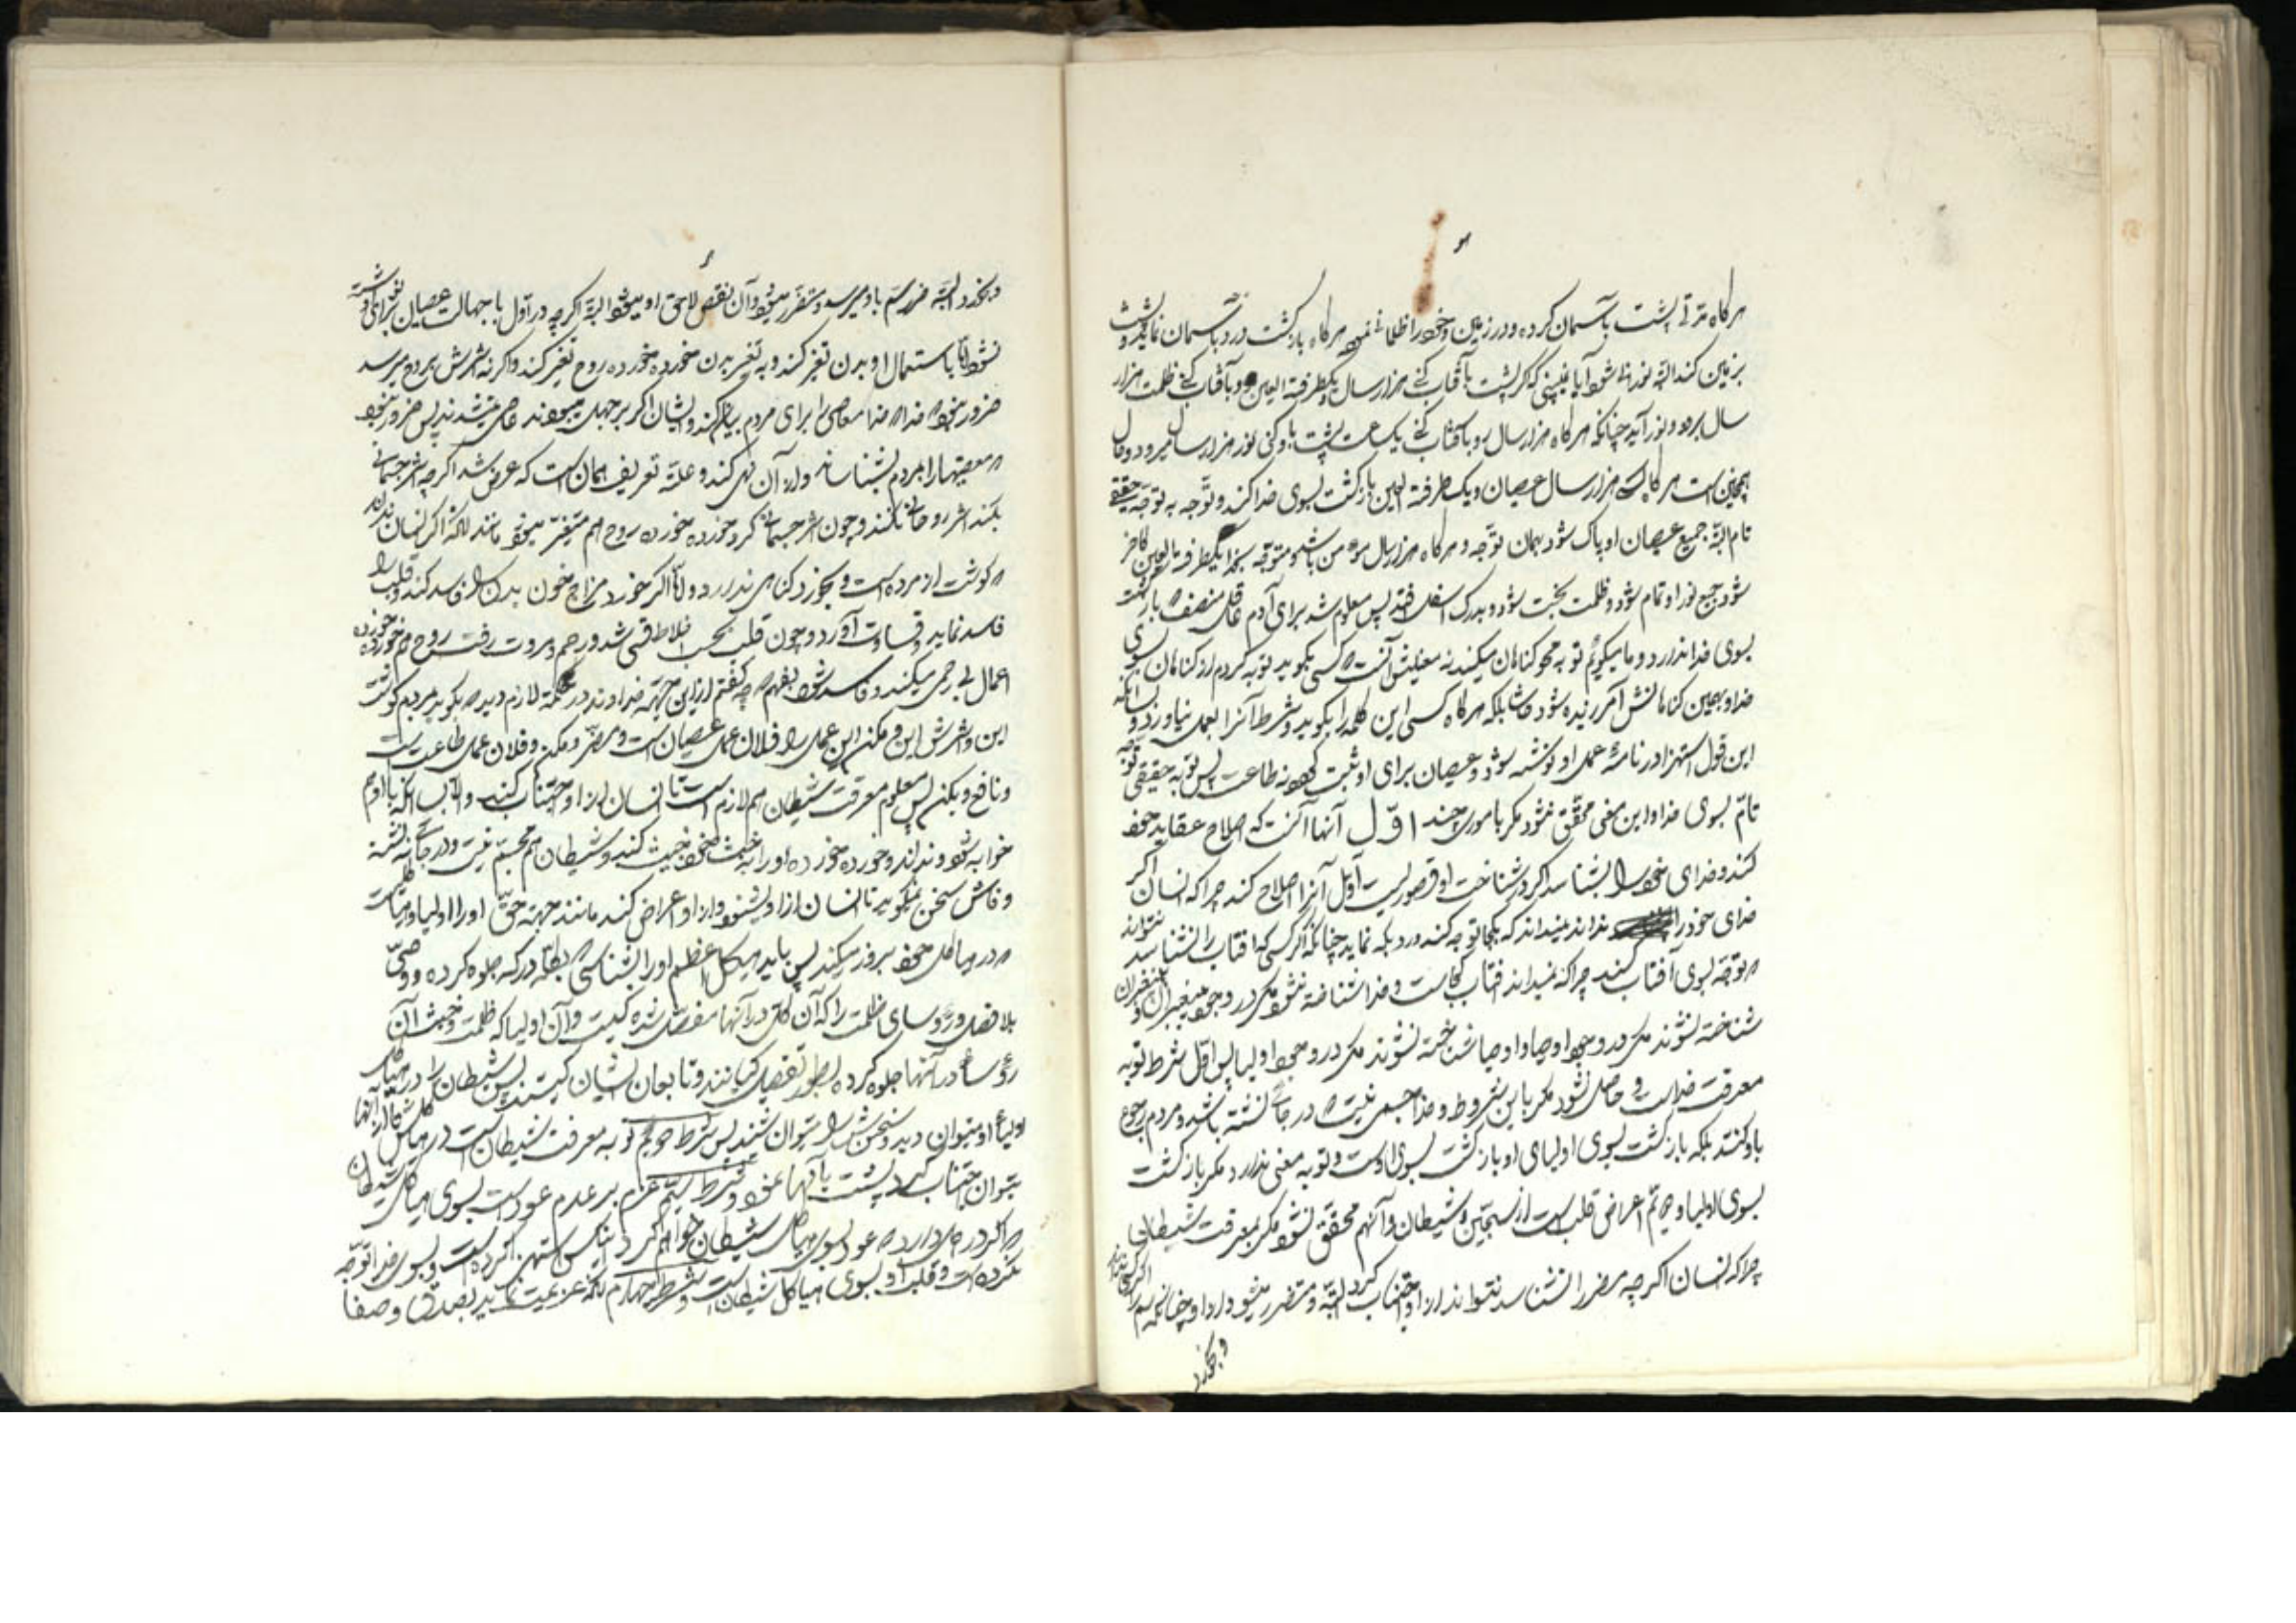 هرگاه مدتی پشت بآسمان کرده و در زمین و خود را ظلمانی نمود هرگاه بازگشت کرد بآسمان نماید و پشت
بزمین کند البته نورانی شود آیا نمی‌بینی که اگر پشت بآفتاب کنی هزار سال و یکطرفة العین رو بآفتاب کنی ظلمت هزار
سال برود و نور آید چنانکه هرگاه هزار سال رو بآفتاب کنی یکساعت پشت باو کنی نور هزار سال میرود و حال
همچنین است هرگاه کسی هزار سال عصیان و یک طرفة العین بازگشت بسوی خدا کند و توجه به توجه حقیقی
تام البته جمیع عصیان او پاک شود بهمان توجه و هرگاه هزار سال مؤمن باشد و متوجه بخدا یکطرفة العین کافر
شود جمیع نور او تمام شود و ظلمت بحت شود و بدرک اسفل افتد پس معلوم شد برای آدم عاقل منصف که بازگشت
بسوی خدا ندارد و ما میگوئیم توبه محو گناهان میکند نه معنیش آنست که کسی بگوید توبه کردم از گناهان بسوی
خدا و بهمین گناهانش آمرزیده شود حاشا بلکه هرگاه کسی این کلمه را بگوید و شرط آنرا بعمل نیاورد و
این قول استهزا در نامهٔ عمل او نوشته شود و عصیان برای او ثبت کنند نه طاعت پس توبه حقیقی توجه
تام بسوی خدا و این معنی محقق نشود مگر باموری چند اوّل آنها آنست که اصلاح عقاید خود
کند و خدای خود را بشناسد اگر در شناخت او قصوریست اول آنرا اصلاح کند چرا که انسان اگر
خدای خود را نداند نمیداند که بکجا توجه کند و رو بکه نماید چنانکه اگر کسی که افتاب را نشناسد نتواند
که توجه بسوی آفتاب کند چرا که نمیداند افتاب کجاست و خدا شناخته نشود مگر در وجود پیغمبران و پیغمبران
شناخته نشوند مگر در وجود اوصیا و اوصیا شناخته نشوند مگر در وجود اولیا پس اول شرط توبه
معرفت خداست و حاصل نشود مگر باین شروط و خدا جسمی نیست که در جائی نشسته باشد و مردم رجوع
باو کنند بلکه بازگشت بسوی اولیای او بازگشت بسوی اوست و توبه معنی ندارد مگر بازگشت
بسوی اولیا و دویم اعراض قلب است از سجین و شیطان و آنهم محقق نشود مگر بمعرفت شیطان
چرا که انسان اگر چه مضر را نشناسد نتواند از او اجتناب کرد البته و متضرر میشود از او چنانکه اگر کسی سم را نداند
و بخورد
و بخورد البته ضرر سم باو میرسد و متضرر میشود و آن نقص لاحق او میشود البته اگر چه در اول با جهالت عصیان برای او نوشته
نشود اما باستعمال او بدن تغیر کند و به تغیر بدن خورده خورده روح تغیر کند و اگر نه شرش بروح میرسد
ضرور نبود که خداوند معاصی را برای مردم بیان کند و ایشان اگر بر جهل میبودند عاصی نمیشدند پس ضرور نبود
که معصیتها را بمردم بشناساند و از آن نهی کند و علة تعریف همان است که عرض شد اگر چه اثر جسمانی
بکند اثر روحانی نکند و چون اثر جسمانی کرد خورده خورده روح هم متغیر میشود مانند آنکه اگر انسان نداند
که گوشت از مرده است و بخورد گناهی ندارد و لکن اگر خورد مزاج خون بدن را فاسد کند و قلب را
فاسد نماید و قساوت آورد و چون قلب بحسب اخلاط قسی شد و رحم و مروت رفت روح هم خورده خورده
اعمال بی رحمی میکند و فاسد شود بفهم که چه گفتم از این جهة خداوند در حکمة لازم دید که بگوید مردم گوشت
این و شرش این و مکن این عمل را و فلان عمل عصیان است و مضر و مکن و فلان عمل طاعت است
و نافع و بکن پس معلوم معرفت شیطان هم لازم است تا انسان از او اجتناب کند و الا بسا آنکه با او هم
خوابه شود و نداند و خورده خورده او را به خبث خود خبیث کند و شیطان هم مجسم نیست و در جائی نشسته
و فاش سخن نمیگوید تا انسان از او بشنود و از او اعراض کند مانند جهة حق او را اولیا و هیاکلی است
که در هیاکل خود بروز میکند پس باید هیکل اعظم او را بشناسی که بکلّه در که جلوه کرده و وصیّ
بلا فصل و رؤسای ظلمت را که آن کلی در آنها مفصل شده کیست و آن اولیا که ظلمت و خبث آن
رؤسا در آنها جلوه کرده بطور تفصیل کیانند و تابعان ایشان کیستند پس شیطان را در هیاکل
اولیاء او میتوان دید و سخنش را میتوان شنید پس شرط دویم توبه معرفت شیطان است در هیاکلش تا از آنها
بتوان اجتناب کرد و پشت بآنها نمود و شرط سیّم عزم بر عدم عود است بسوی هیاکل شیطان
که اگر در دل دارد که عود بسوی هیاکل شیطان خواهم کرد آنکس استهزا کرده است و بسوی خدا توجه
نکرده است و قلب او بسوی هیاکل شیطان است و شرط چهارم آنکه عزیمت نماید بصدق و صفا